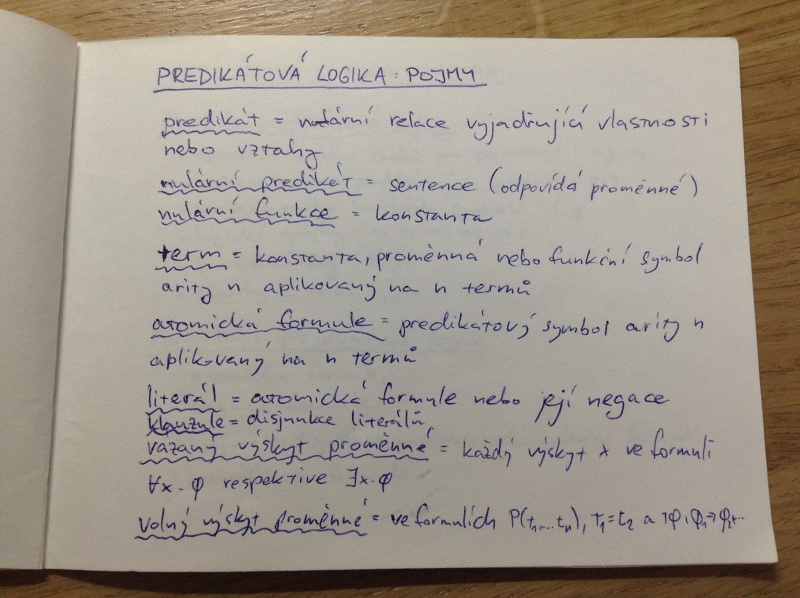 PREDIKÁTOVÁ LOGIKA: POJMY
predikát = n-ární relace vyjadřující vlastnosti
nebo vztahy
nulární predikát = sentence (odpovídá proměnné)
nulární funkce = konstanta
term = konstanta, proměnná nebo funkční symbol
arity n aplikovaný na n termů
atomická formule = predikátový symbol arity n
aplikovaný na n termů
literál = atomická formule nebo její negace
klauzule = disjunkce literálů
vázaný výskyt proměnné = každý výskyt x ve formuli
∀x.φ respektive ∃x.φ
volný výskyt proměnné = ve formulích P(t₁,...tₙ), t₁=t₂ a ¬φ, φ₁→φ₂